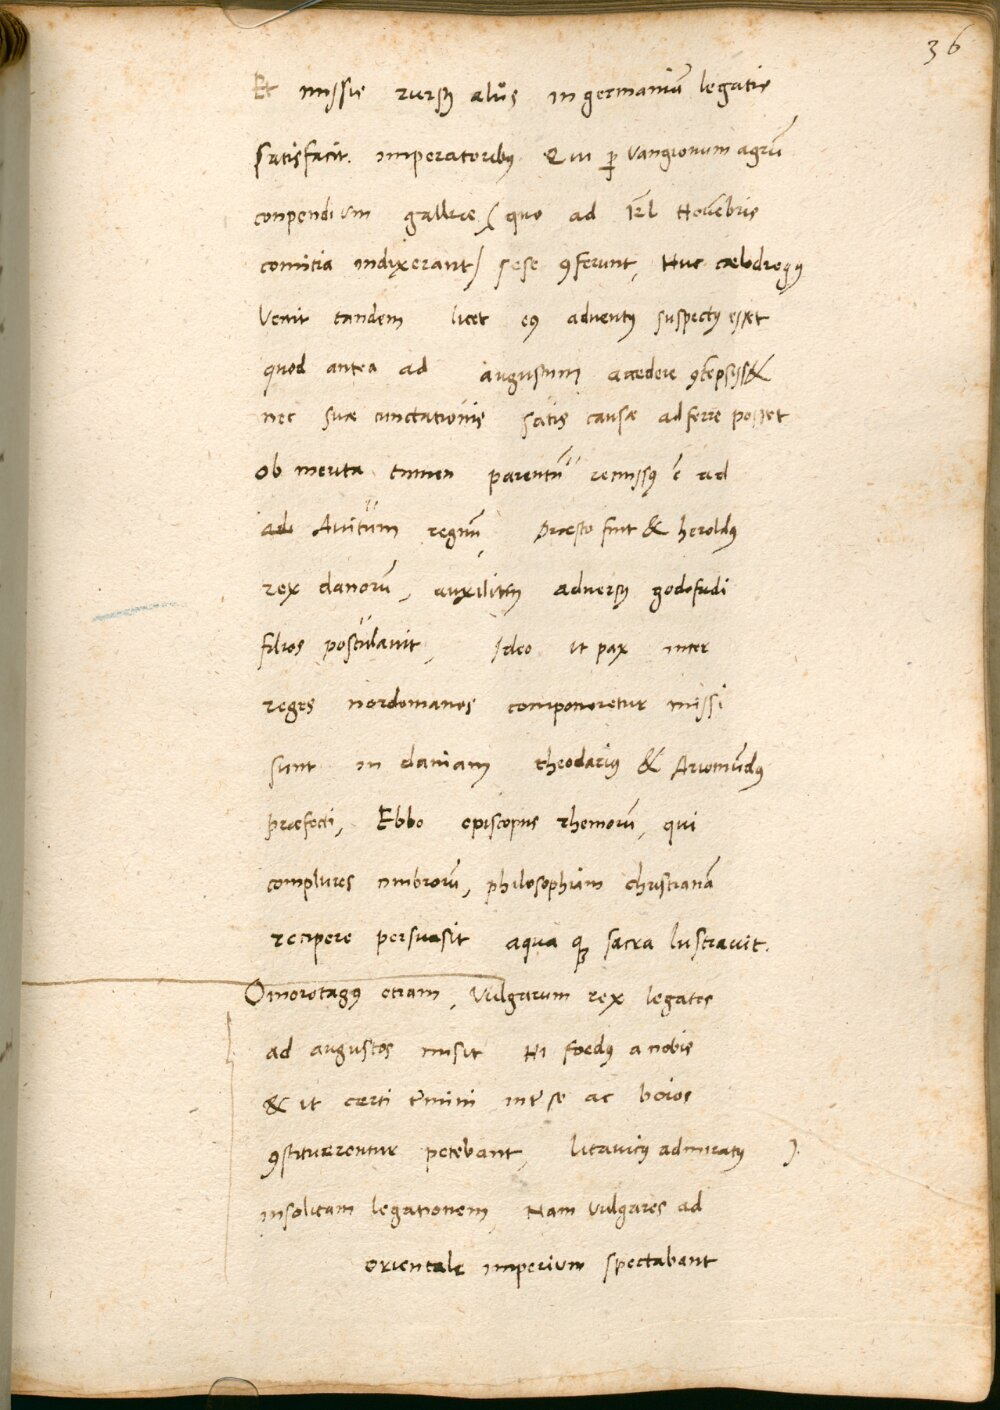 36
Et missis rursꝰ aliis in germaniā legatis
satisfacit. imperatoribꝰ. Qui ꝑ Vangionum agrū
conpendium galliae ( quo ad Kl Novēbris
comitia indixerant) sese ꝯferunt, Huc caelodregꝰ
Venit tandem licet eiꝰ adventꝰ suspectꝰ esset
quod antea ad augustum accedere ꝯtēpsiss&
nec suae cunctationis satis causae adferre posset
ob merita tamen parentū remissꝰ ē ad
ad Avitum regnū, Praesto fuit & heroldꝰ
rex danorū, auxilium adversꝰ godofridi
filios postulavit, Ideo ut pax inter
reges nordomanos componeretur missi
sunt in daniam theodariꝰ & Ariomūdꝰ
praefecti, Ebbo episcopus rhemorū, qui
complures cimbrorū, philosophiam christianā
recipere persuasit aqua qꝫ sacra lustravit.
Omorotagꝰ etiam, Vulgarum rex legatos
ad augustos misit Hi foedꝰ a nobis
& ut certi termini inter se ac boios
ꝯstituerentur petebant, litavicꝰ admiratꝰ ).
insolitam legationem Nam Vulgares ad
orientale imperium spectabant